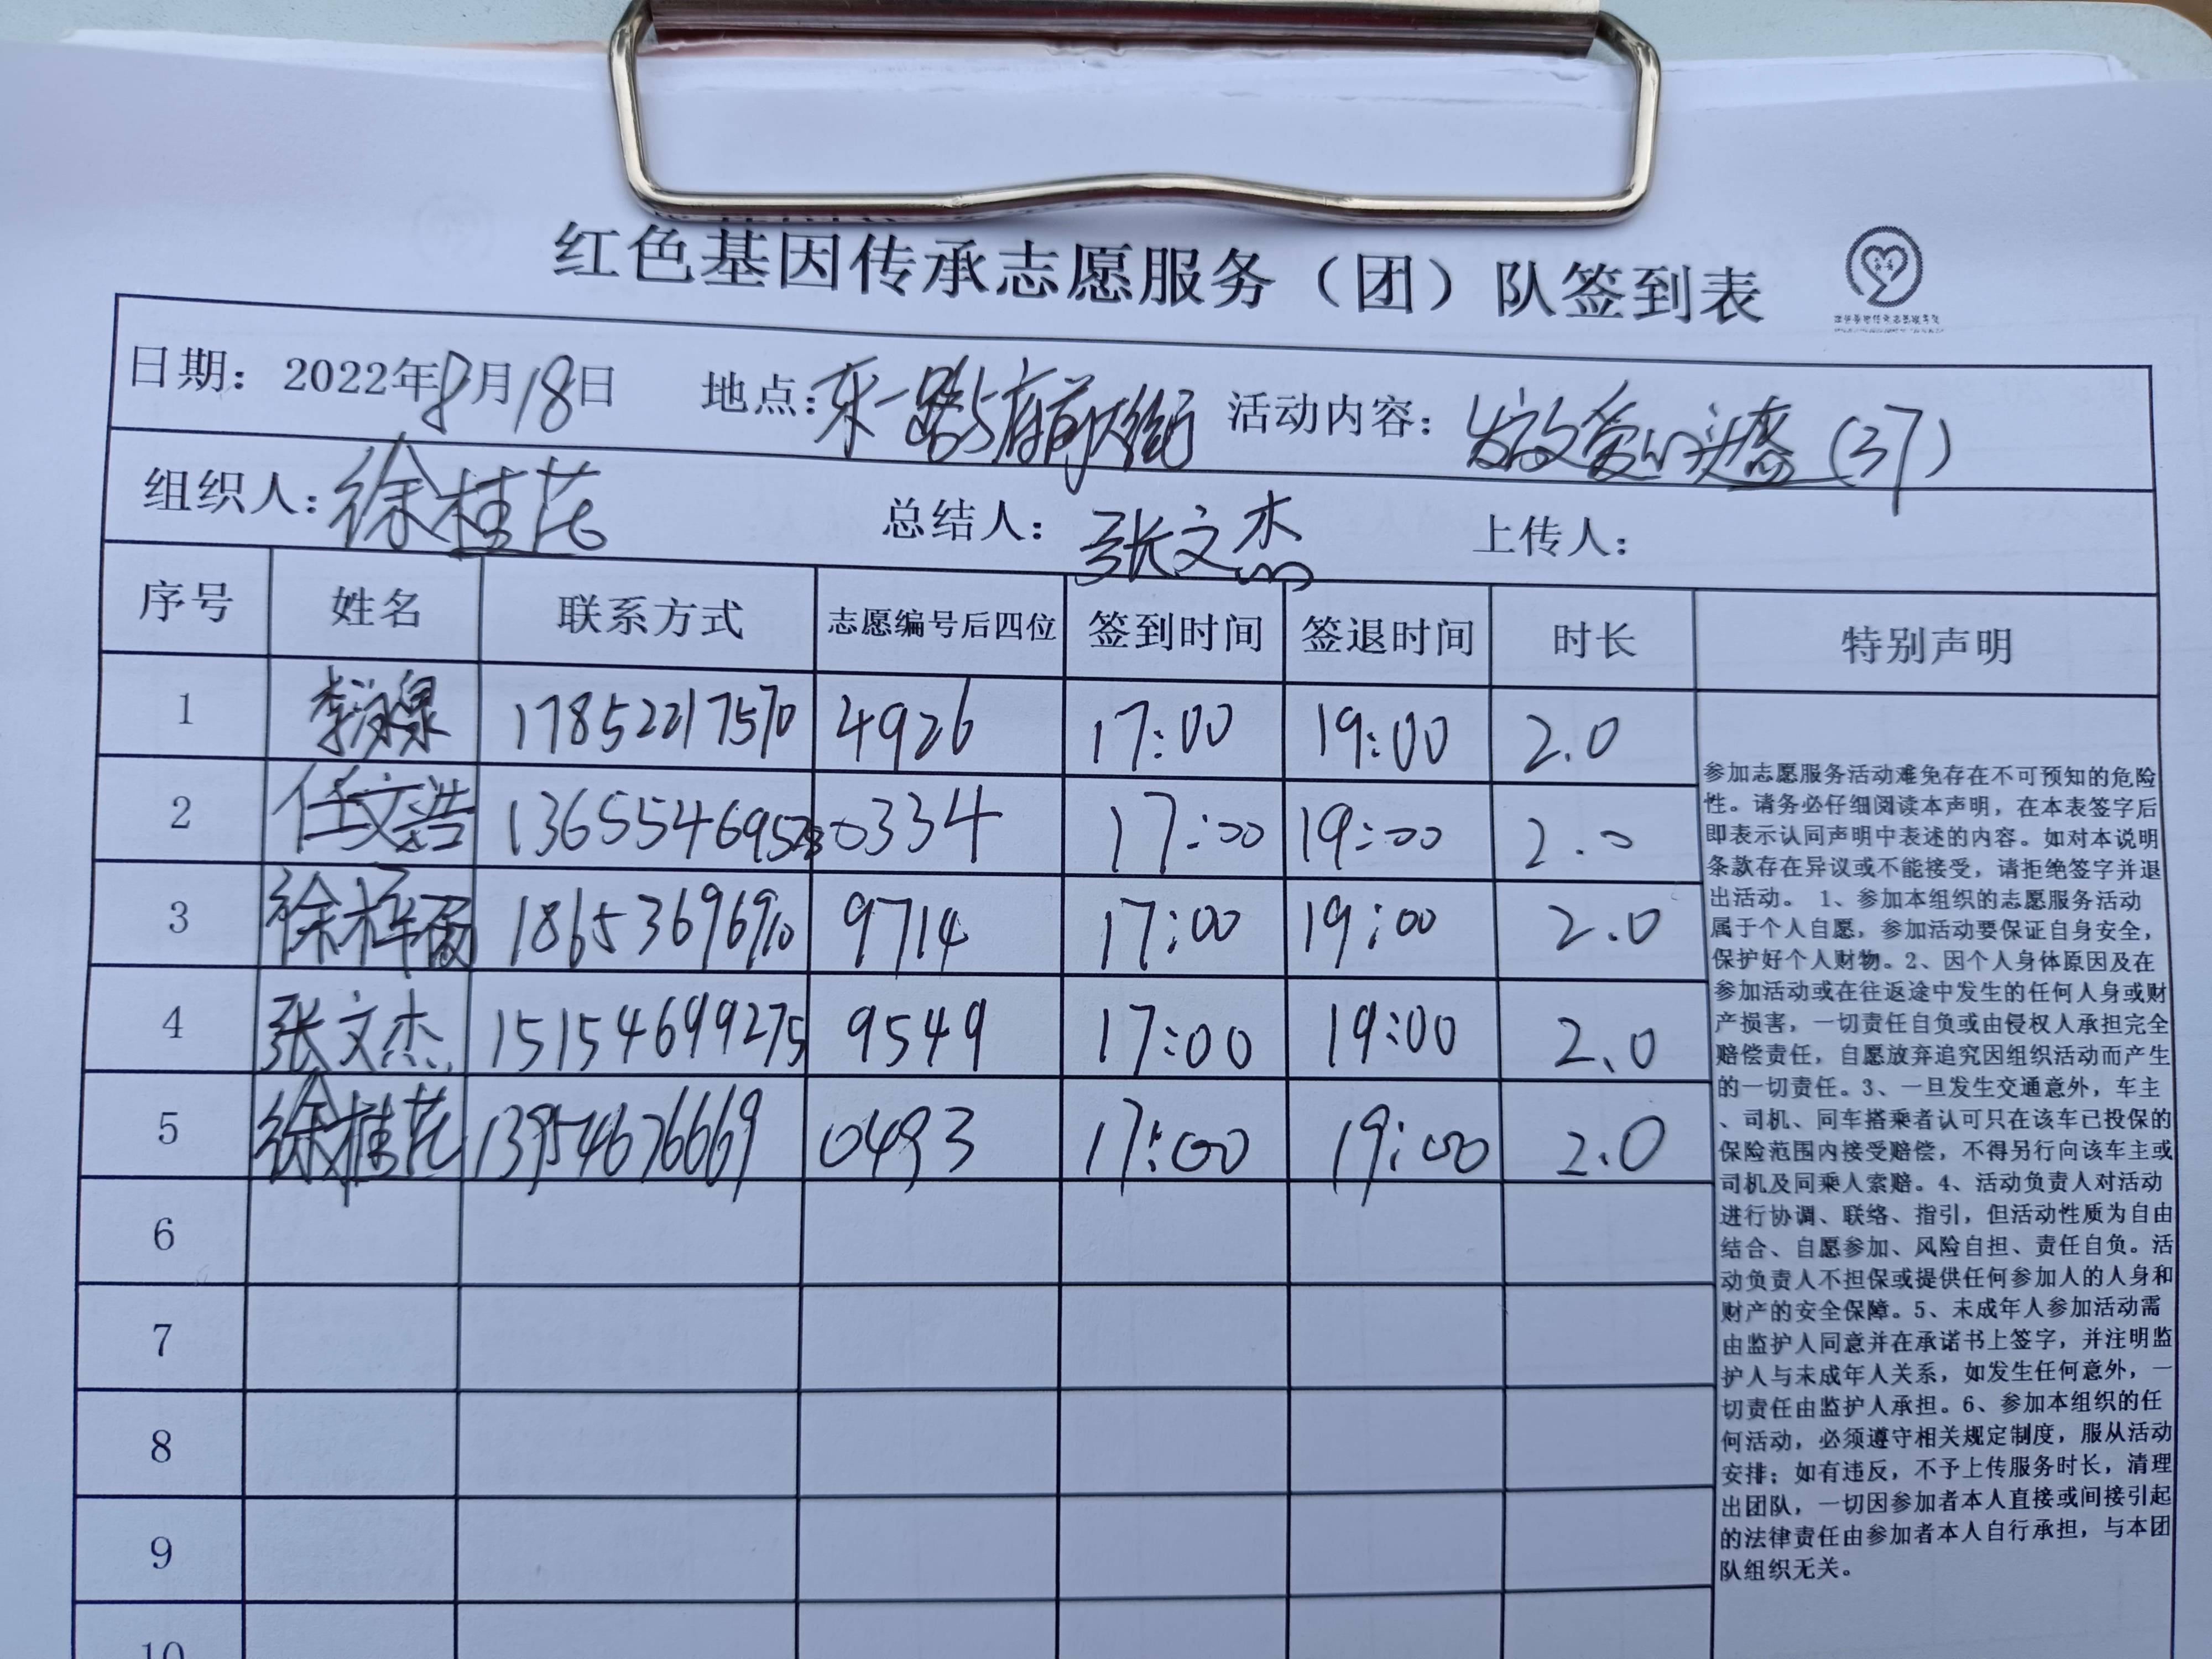 红色基因传承志愿服务（团）队签到表
日期：2022年8月18日 地点：东一路与府前大街 活动内容：发放爱心头盔（37）
组织人：徐桂花 总结人：张文杰 上传人：
序号 姓名 联系方式 志愿编号后四位 签到时间 签退时间 时长 特别声明
1 李泳泉 17852217570 4926 17:00 19:00 2.0
2 任文浩 0334 17:00 19:00 2.0
3 徐梓雨 18653696910 9714 17:00 19:00 2.0
4 张文杰 15154699275 9549 17:00 19:00 2.0
5 徐桂花 13954676669 0493 17:00 19:00 2.0
6
7
8
9
10
参加志愿服务活动难免存在不可预知的危险
性。请务必仔细阅读本声明，在本表签字后
即表示认同声明中表述的内容。如对本说明
条款存在异议或不能接受，请拒绝签字并退
出活动。 1、参加本组织的志愿服务活动
属于个人自愿，参加活动要保证自身安全，
保护好个人财物。2、因个人身体原因及在
参加活动或在往返途中发生的任何人身或财
产损害，一切责任自负或由侵权人承担完全
赔偿责任，自愿放弃追究因组织活动而产生
的一切责任。3、一旦发生交通意外，车主
、司机、同车搭乘者认可只在该车已投保的
保险范围内接受赔偿，不得另行向该车主或
司机及同乘人索赔。4、活动负责人对活动
进行协调、联络、指引，但活动性质为自由
结合、自愿参加、风险自担、责任自负。活
动负责人不担保或提供任何参加人的人身和
财产的安全保障。5、未成年人参加活动需
由监护人同意并在承诺书上签字，并注明监
护人与未成年人关系，如发生任何意外，一
切责任由监护人承担。6、参加本组织的任
何活动，必须遵守相关规定制度，服从活动
安排；如有违反，不予上传服务时长，清理
出团队，一切因参加者本人直接或间接引起
的法律责任由参加者本人自行承担，与本团
队组织无关。